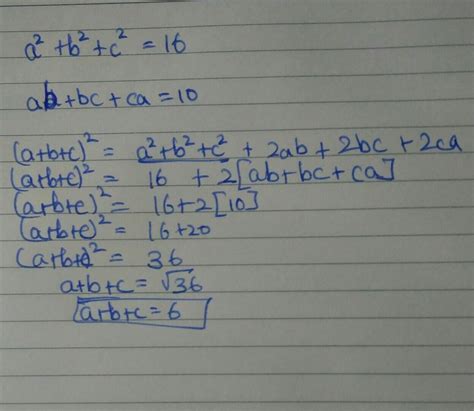 a² + b² + c² = 16
ab + bc + ca = 10
(a+b+c)² = a² + b² + c² + 2ab + 2bc + 2ca
(a+b+c)² = 16 + 2[ab+bc+ca]
(a+b+c)² = 16+2[10]
(a+b+c)² = 16+20
(a+b+c)² = 36
a+b+c = √36
a+b+c = 6